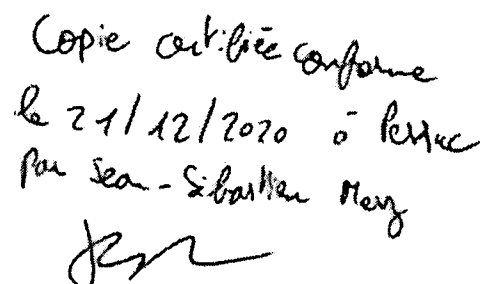 Copie certifiée conforme
le 21/12/2020 à Pessac
par Jean-Sébastien Merz